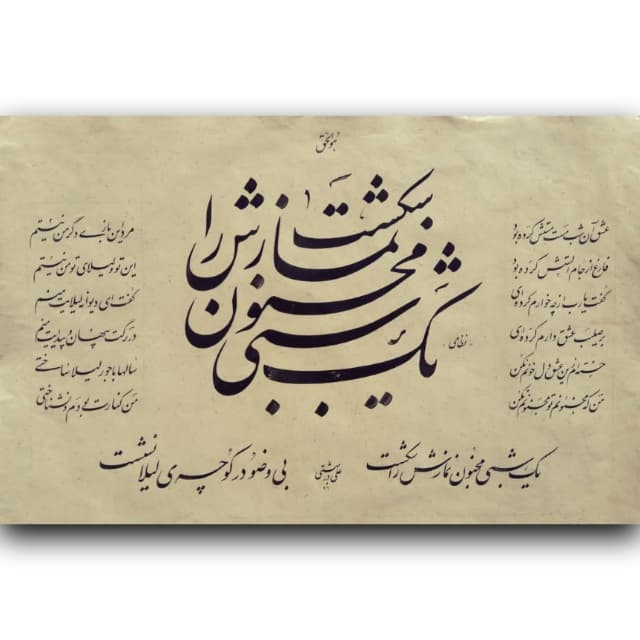 هوالحق
یک شبی مجنون نمازش را شکست
نظامی
عشق آن شب مست مستش کرده بود
فارغ از جام الستش کرده بود
گفت یارب از چه خوارم کرده‌ای
بر صلیب عشق دارم کرده‌ای
خسته‌ام زین عشق دل خونم نکن
من که مجنونم تو مجنونم نکن
مرد این بازی دگر من نیستم
این تو و لیلای تو من نیستم
گفت ای دیوانه لیلایت منم
در رگت پنهان و پیدایت منم
سالها با جور لیلا ساختی
من کنارت بودم و نشناختی
یک شبی مجنون نمازش را شکست
بی وضو در کوچه‌ی لیلا نشست